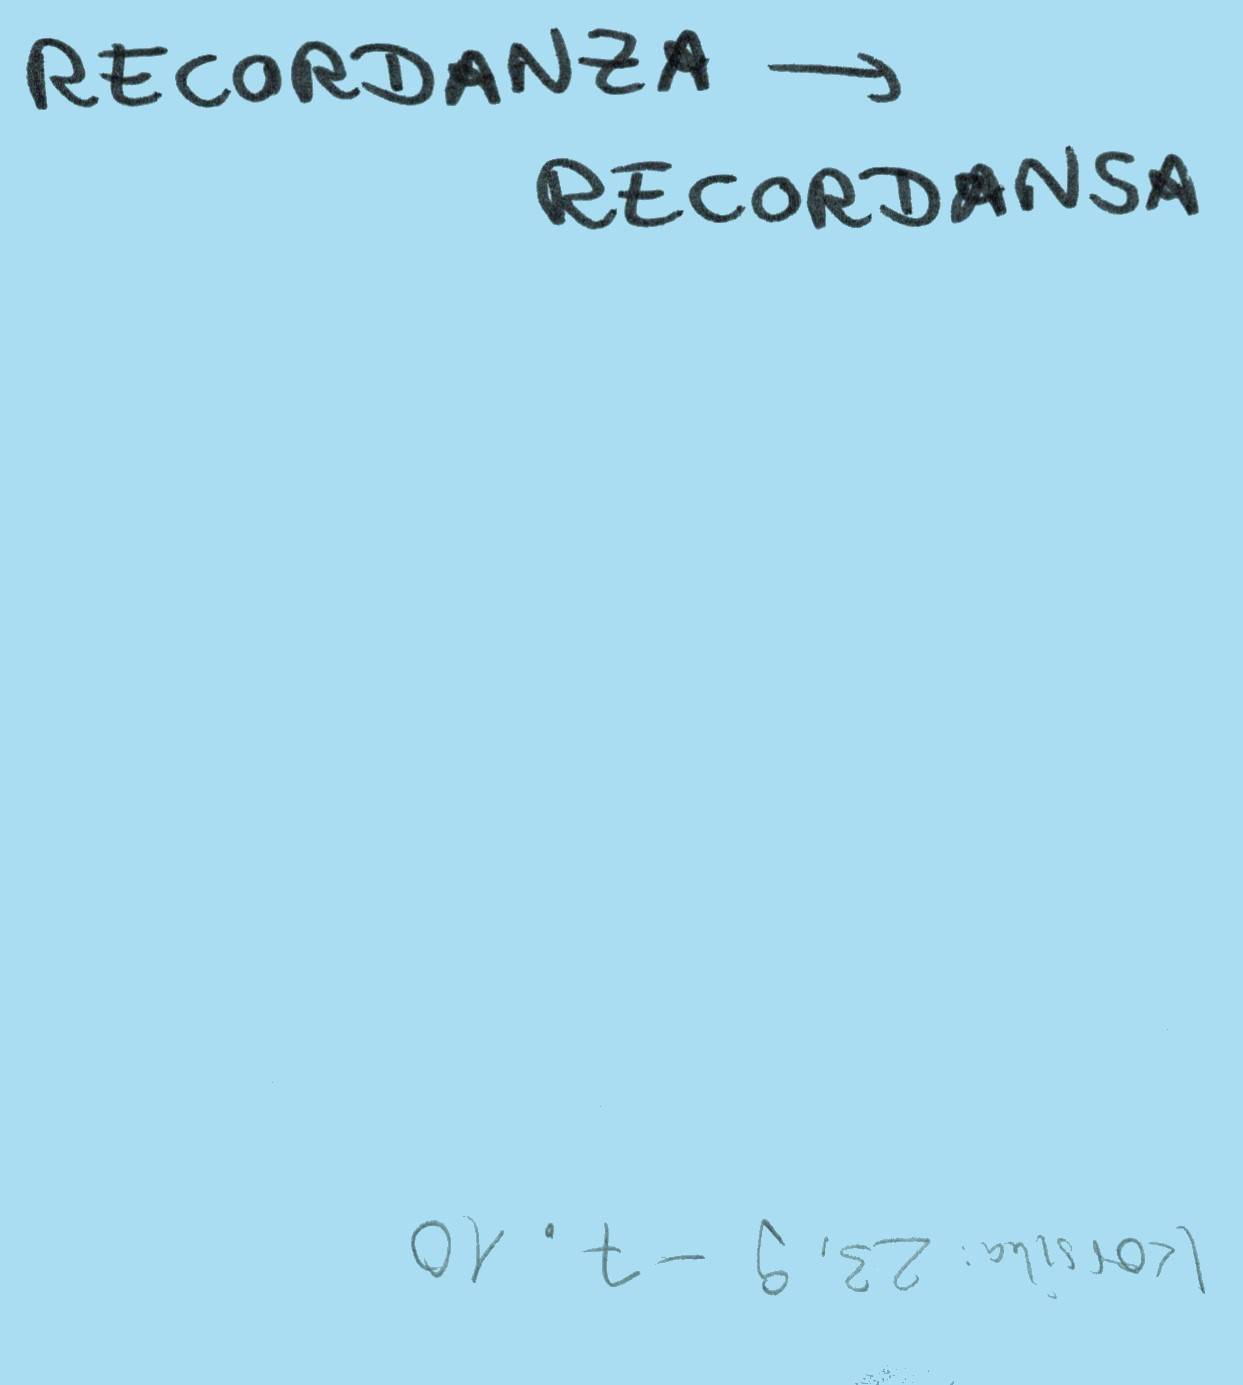 RECORDANZA →
RECORDANSA
Korsika: 23.9 – 7.10